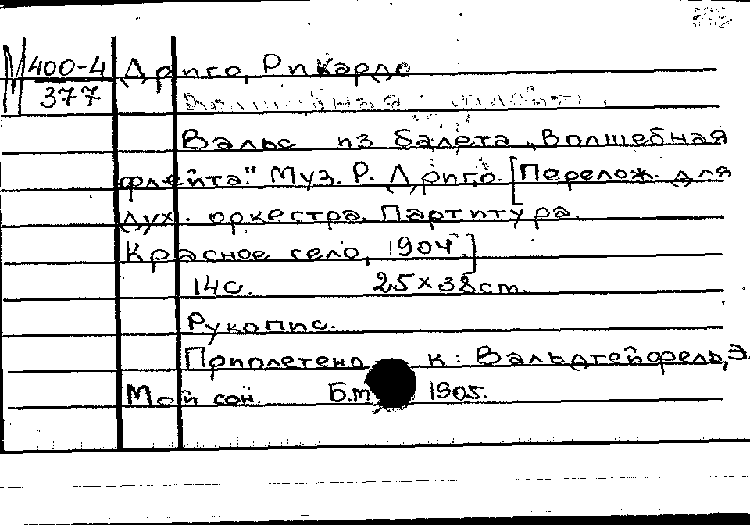 М 400-4
377
Дриго, Рикардо
Вальс из балета „Волшебная
флейта." Муз. Р. Дриго. [Перелож. для
дух. оркестра. Партитура.
Красное село, 1904.]
14с. 25×38 cm.
Рукопис.
Приплетено к: Вальдтейфель, Э.
Мой сон. Б.м. 1905.